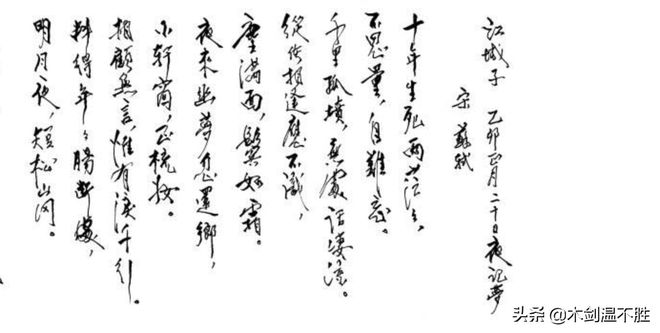 江城子 乙卯正月二十日夜记夢
宋 蘇軾
十年生死两茫々，
不思量，自難忘。
千里孤墳，無處話淒涼。
縱使相逢應不識，
塵滿面，鬢如霜。
夜來幽夢忽還鄉，
小軒窗，正梳妝。
相顧無言，惟有淚千行。
料得年々腸斷處，
明月夜，短松岡。
头条 @木剑温不胜